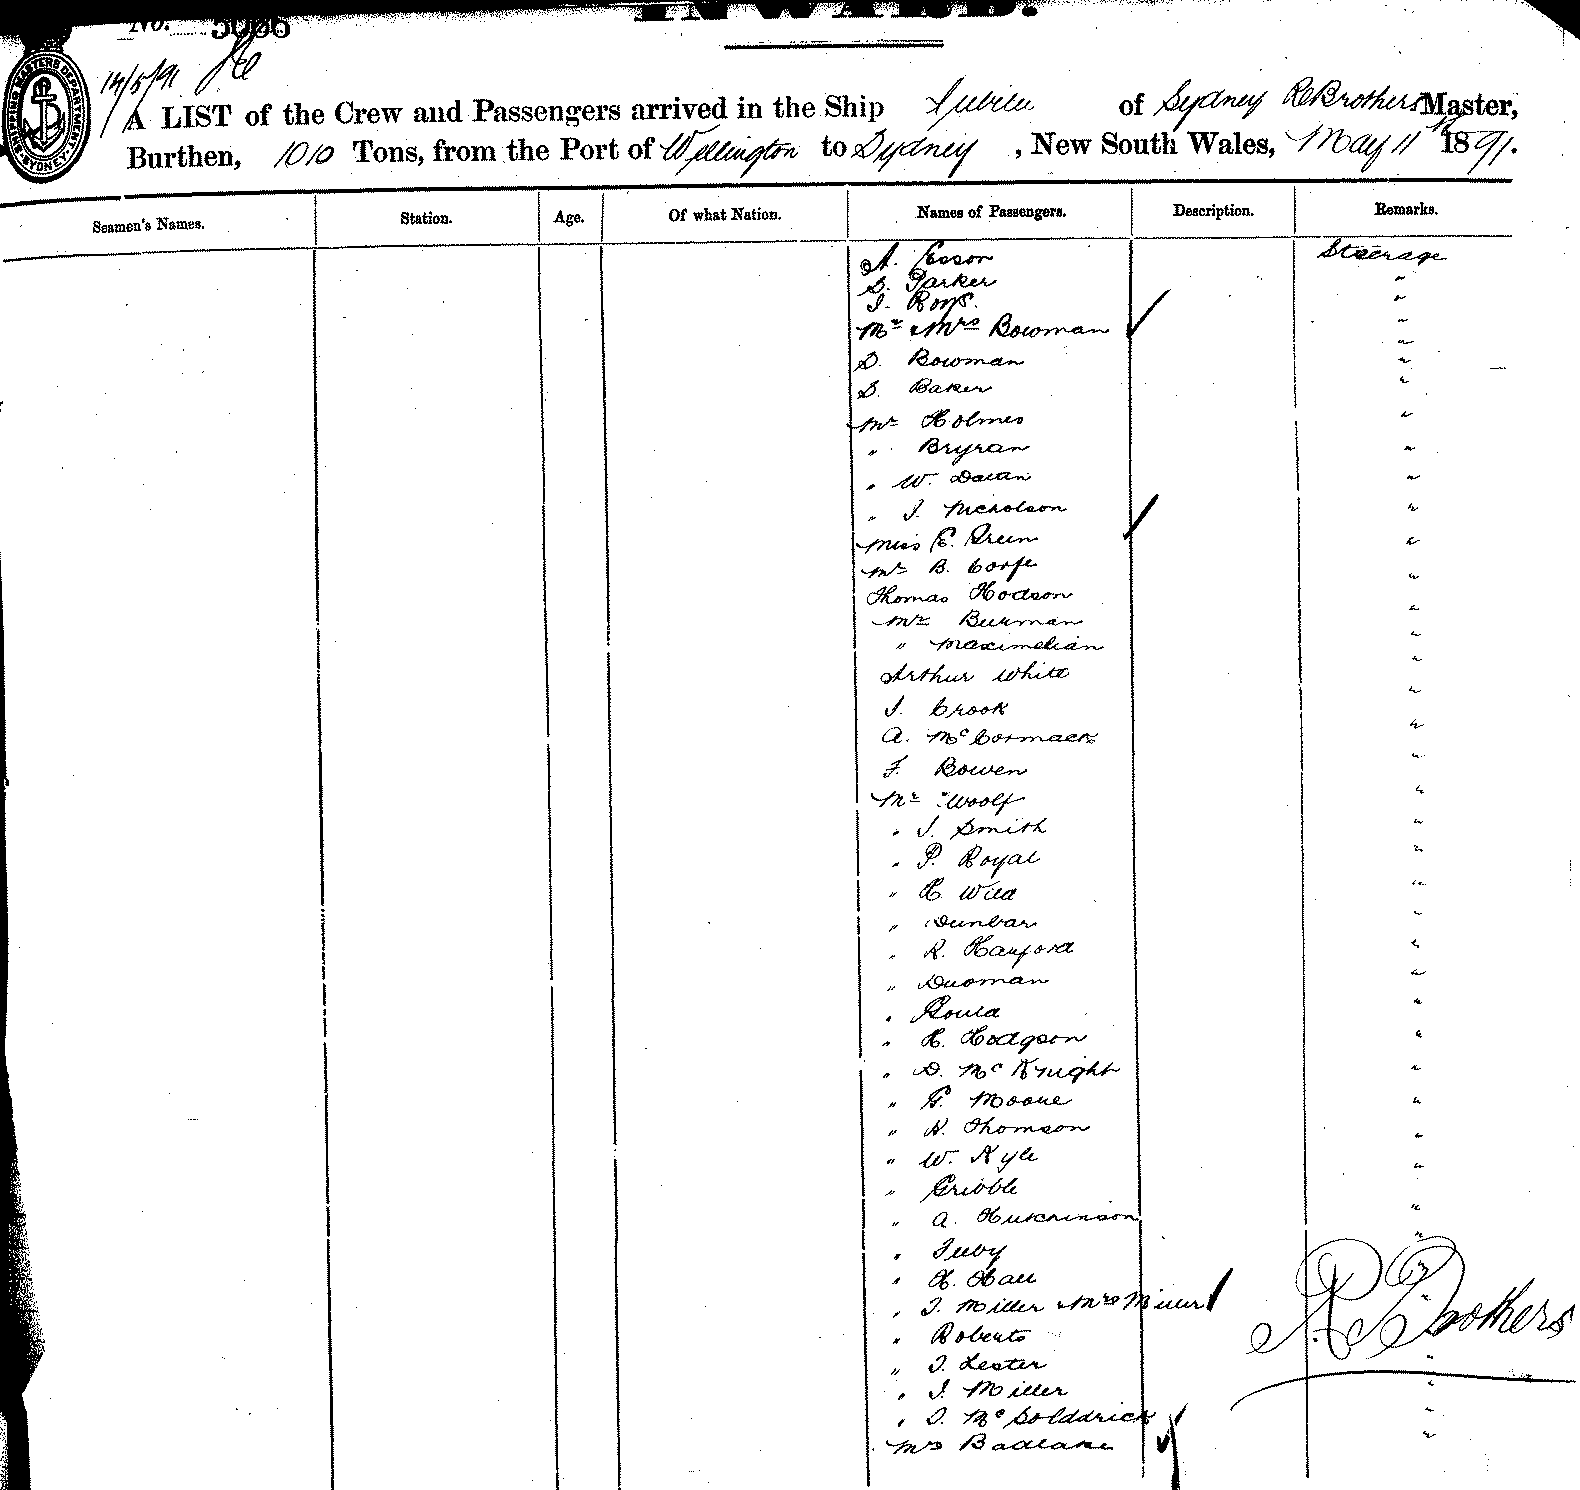 INWARD.
No. 5086
14/5/91
SHIPPING MASTERS DEPARTMENT
A LIST of the Crew and Passengers arrived in the Ship of Sydney R Brothers Master,
Burthen, 1010 Tons, from the Port of Wellington to Sydney, New South Wales, May 11th 1891.
Seamen's Names. Station. Age. Of what Nation. Names of Passengers. Description. Remarks.
A. Esson Steerage
S. Parker "
J. Boys. "
Mr & Mrs Bowman "
D. Bowman "
S. Baker "
Mr Holmes "
" Bryran "
" W. Dawan "
" J. Nicholson "
Miss E. Green "
Mr B. Corfe "
Thomas Hodson "
Mr Burman "
" Maximelian "
Arthur White "
J. Crook "
A. McCormack "
F. Bowen "
Mr Woolf "
" J. Smith "
" P. Royal "
" H Wild "
" Dunbar "
" R. Hayford "
" Duoman "
" Gould "
" H. Hodgson "
" D. McKnight "
" G. Moore "
" R. Thomson "
" W. Kyle "
" Gribble "
" A. Hutchinson "
" Tuby "
" H. Hall
" J. Miller & Mrs Miller
" Roberts R Brothers
" J. Lester "
" J. Miller "
" J. McGolddrick "
Mrs Badlake "